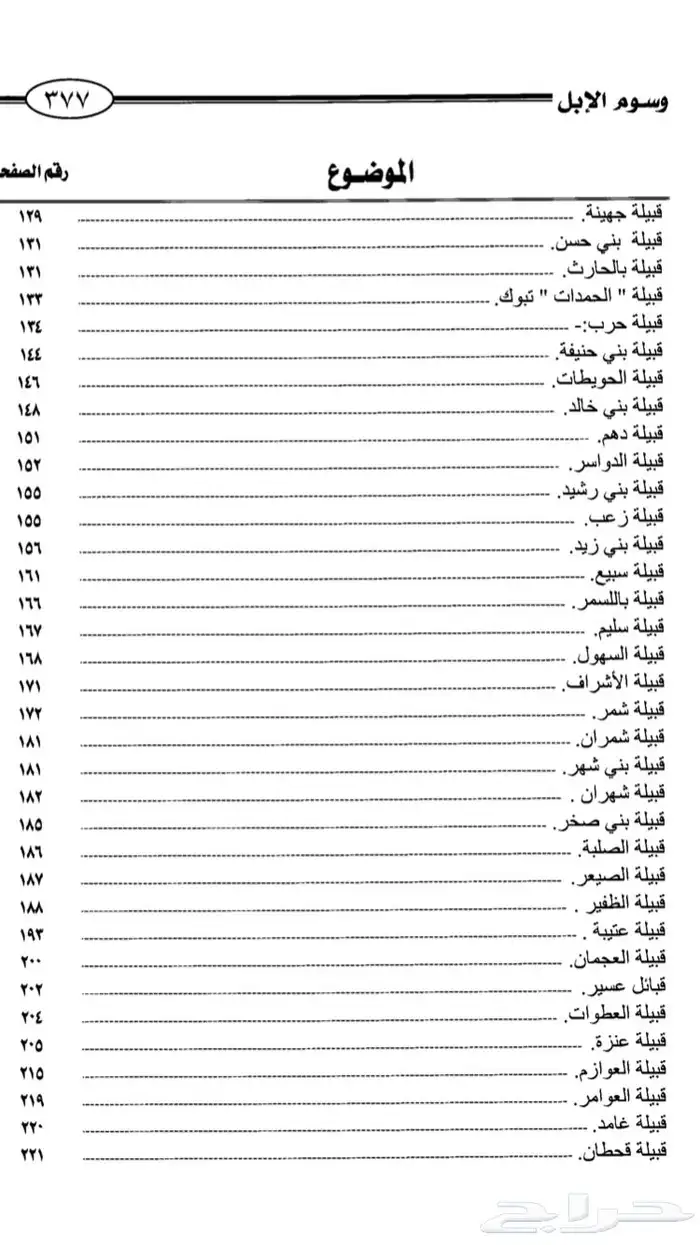 وسوم الإبل ٣٧٧
الموضوع رقم الصفح
قبيلة جهينة. ١٢٩
قبيلة بني حسن. ١٣١
قبيلة بالحارث. ١٣١
قبيلة " الحمدات " تبوك. ١٣٣
قبيلة حرب:- ١٣٤
قبيلة بني حنيفة. ١٤٤
قبيلة الحويطات. ١٤٦
قبيلة بني خالد. ١٤٨
قبيلة دهم. ١٥١
قبيلة الدواسر. ١٥٢
قبيلة بني رشيد. ١٥٥
قبيلة زعب. ١٥٥
قبيلة بني زيد. ١٥٦
قبيلة سبيع. ١٦١
قبيلة باللسمر. ١٦٦
قبيلة سليم. ١٦٧
قبيلة السهول. ١٦٨
قبيلة الأشراف. ١٧١
قبيلة شمر. ١٧٢
قبيلة شمران. ١٨١
قبيلة بني شهر. ١٨١
قبيلة شهران . ١٨٢
قبيلة بني صخر. ١٨٥
قبيلة الصلبة. ١٨٦
قبيلة الصيعر. ١٨٧
قبيلة الظفير . ١٨٨
قبيلة عتيبة . ١٩٣
قبيلة العجمان. ٢٠٠
قبائل عسير. ٢٠٢
قبيلة العطوات. ٢٠٤
قبيلة عنزة. ٢٠٥
قبيلة العوازم. ٢١٥
قبيلة العوامر. ٢١٩
قبيلة غامد. ٢٢٠
قبيلة قحطان. ٢٢١
حراج